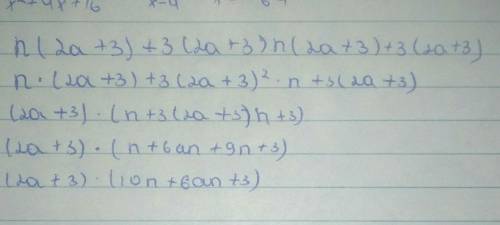 n(2a+3)+3(2a+3)n(2a+3)+3(2a+3)
n·(2a+3)+3(2a+3)²·n+3(2a+3)
(2a+3)·(n+3(2a+3)n+3)
(2a+3)·(n+6an+9n+3)
(2a+3)·(10n+6an+3)